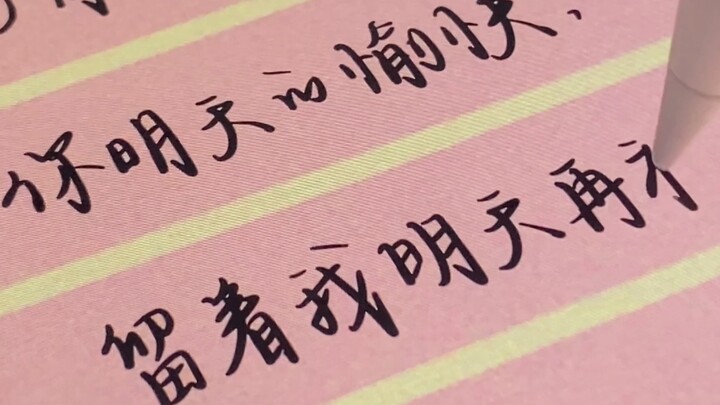 你明天的愉快，
留着我明天再